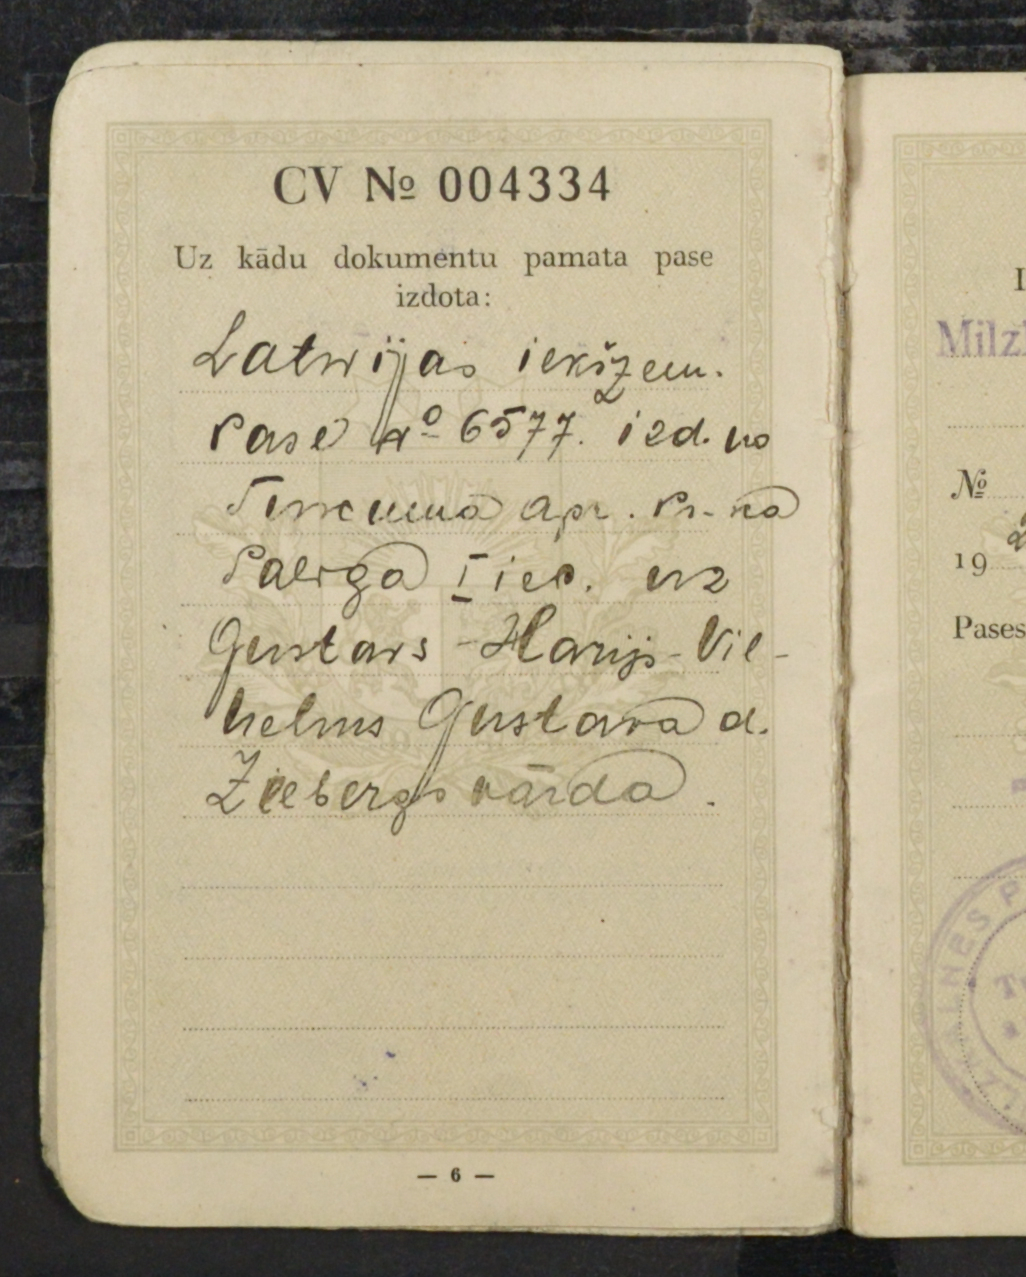 CV № 004334
Uz kādu dokumentu pamata pase
izdota:
Latvijas iekšzem.
Pase № 6577. izd. no
Tukuma apr. Pr-ka
Palīga I iec. uz
Gustavs-Harijs-Vil-
helms Gustava d.
Zeebergs vārda.
— 6 —
Milz
№
19
Pases